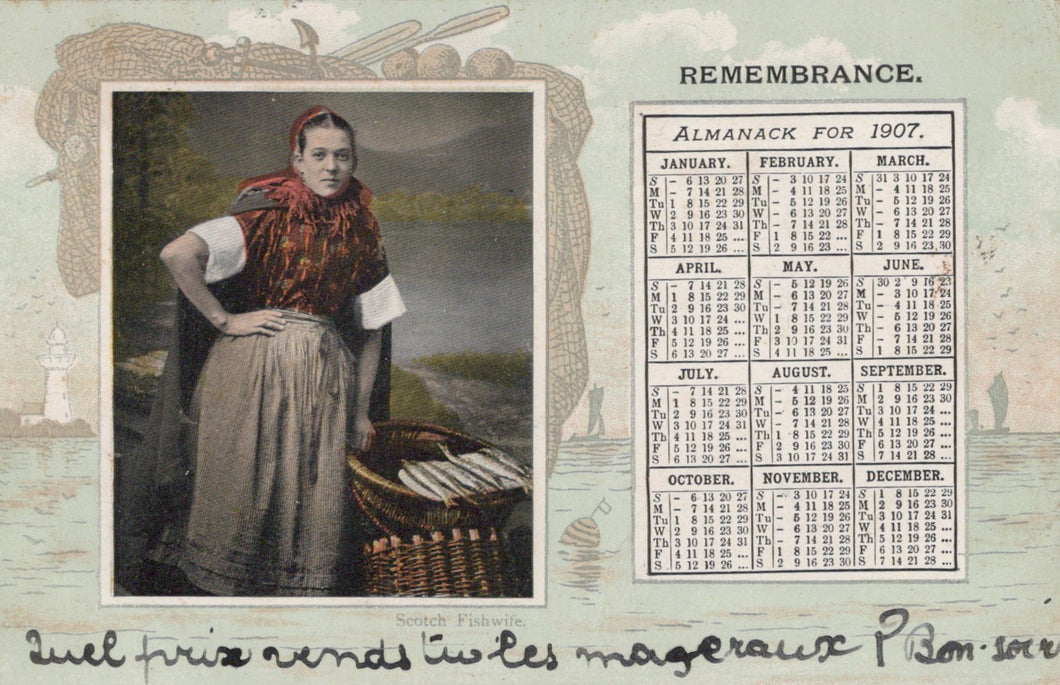 REMEMBRANCE.
ALMANACK FOR 1907.
JANUARY.
S – 6 13 20 27
M – 7 14 21 28
Tu 1 8 15 22 29
W 2 9 16 23 30
Th 3 10 17 24 31
F 4 11 18 25 ...
S 5 12 19 26 ...
FEBRUARY.
S – 3 10 17 24
M – 4 11 18 25
Tu – 5 12 19 26
W – 6 13 20 27
Th – 7 14 21 28
F 1 8 15 22 ...
S 2 9 16 23 ...
MARCH.
S 31 3 10 17 24
M – 4 11 18 25
Tu – 5 12 19 26
W – 6 13 20 27
Th – 7 14 21 28
F 1 8 15 22 29
S 2 9 16 23 30
APRIL.
S – 7 14 21 28
M 1 8 15 22 29
Tu 2 9 16 23 30
W 3 10 17 24 ...
Th 4 11 18 25 ...
F 5 12 19 26 ...
S 6 13 20 27 ...
MAY.
S – 5 12 19 26
M – 6 13 20 27
Tu – 7 14 21 28
W 1 8 15 22 29
Th 2 9 16 23 30
F 3 10 17 24 31
S 4 11 18 25 ...
JUNE.
S 30 2 9 16 23
M – 3 10 17 24
Tu – 4 11 18 25
W – 5 12 19 26
Th – 6 13 20 27
F – 7 14 21 28
S 1 8 15 22 29
JULY.
S – 7 14 21 28
M 1 8 15 22 29
Tu 2 9 16 23 30
W 3 10 17 24 31
Th 4 11 18 25 ...
F 5 12 19 26 ...
S 6 13 20 27 ...
AUGUST.
S – 4 11 18 25
M – 5 12 19 26
Tu – 6 13 20 27
W – 7 14 21 28
Th 1 8 15 22 29
F 2 9 16 23 30
S 3 10 17 24 31
SEPTEMBER.
S 1 8 15 22 29
M 2 9 16 23 30
Tu 3 10 17 24 ...
W 4 11 18 25 ...
Th 5 12 19 26 ...
F 6 13 20 27 ...
S 7 14 21 28 ...
OCTOBER.
S – 6 13 20 27
M – 7 14 21 28
Tu 1 8 15 22 29
W 2 9 16 23 30
Th 3 10 17 24 31
F 4 11 18 25 ...
S 5 12 19 26 ...
NOVEMBER.
S – 3 10 17 24
M – 4 11 18 25
Tu – 5 12 19 26
W – 6 13 20 27
Th – 7 14 21 28
F 1 8 15 22 29
S 2 9 16 23 30
DECEMBER.
S 1 8 15 22 29
M 2 9 16 23 30
Tu 3 10 17 24 31
W 4 11 18 25 ...
Th 5 12 19 26 ...
F 6 13 20 27 ...
S 7 14 21 28 ...
Scotch Fishwife.
Quel prix vends tu les mageraux ? Bon-soir